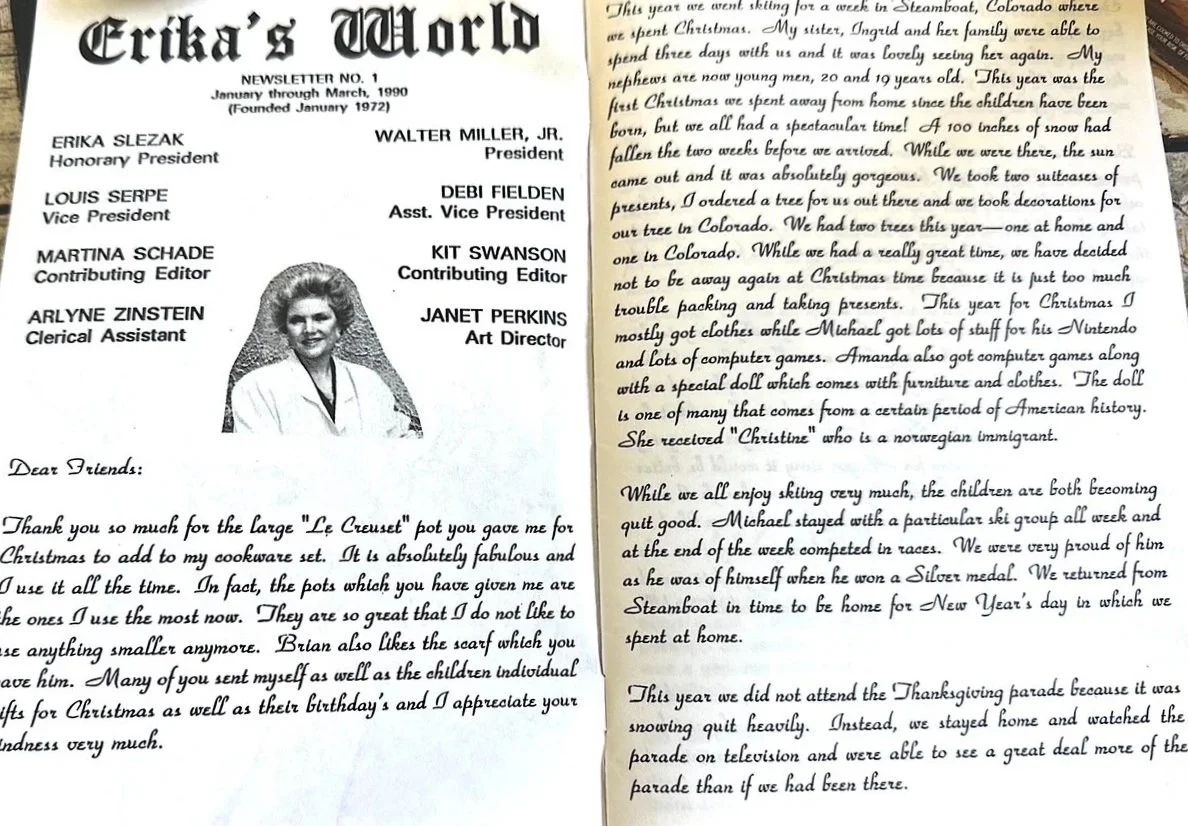 Erika's World
NEWSLETTER NO. 1
January through March, 1990
(Founded January 1972)
ERIKA SLEZAK
Honorary President
WALTER MILLER, JR.
President
LOUIS SERPE
Vice President
DEBI FIELDEN
Asst. Vice President
MARTINA SCHADE
Contributing Editor
KIT SWANSON
Contributing Editor
ARLYNE ZINSTEIN
Clerical Assistant
JANET PERKINS
Art Director
Dear Friends:
Thank you so much for the large "Le Creuset" pot you gave me for
Christmas to add to my cookware set. It is absolutely fabulous and
I use it all the time. In fact, the pots which you have given me are
he ones I use the most now. They are so great that I do not like to
se anything smaller anymore. Brian also likes the scarf which you
ave him. Many of you sent myself as well as the children individual
ifts for Christmas as well as their birthday's and I appreciate your
indness very much.
This year we went skiing for a week in Steamboat, Colorado where
we spent Christmas. My sister, Ingrid and her family were able to
spend three days with us and it was lovely seeing her again. My
nephews are now young men, 20 and 19 years old. This year was the
first Christmas we spent away from home since the children have been
born, but we all had a spectacular time! A 100 inches of snow had
fallen the two weeks before we arrived. While we were there, the sun
came out and it was absolutely gorgeous. We took two suitcases of
presents, I ordered a tree for us out there and we took decorations for
our tree in Colorado. We had two trees this year—one at home and
one in Colorado. While we had a really great time, we have decided
not to be away again at Christmas time because it is just too much
trouble packing and taking presents. This year for Christmas I
mostly got clothes while Michael got lots of stuff for his Nintendo
and lots of computer games. Amanda also got computer games along
with a special doll which comes with furniture and clothes. The doll
is one of many that comes from a certain period of American history.
She received "Christine" who is a norwegian immigrant.
While we all enjoy skiing very much, the children are both becoming
quit good. Michael stayed with a particular ski group all week and
at the end of the week competed in races. We were very proud of him
as he was of himself when he won a Silver medal. We returned from
Steamboat in time to be home for New Year's day in which we
spent at home.
This year we did not attend the Thanksgiving parade because it was
snowing quit heavily. Instead, we stayed home and watched the
parade on television and were able to see a great deal more of the
parade than if we had been there.